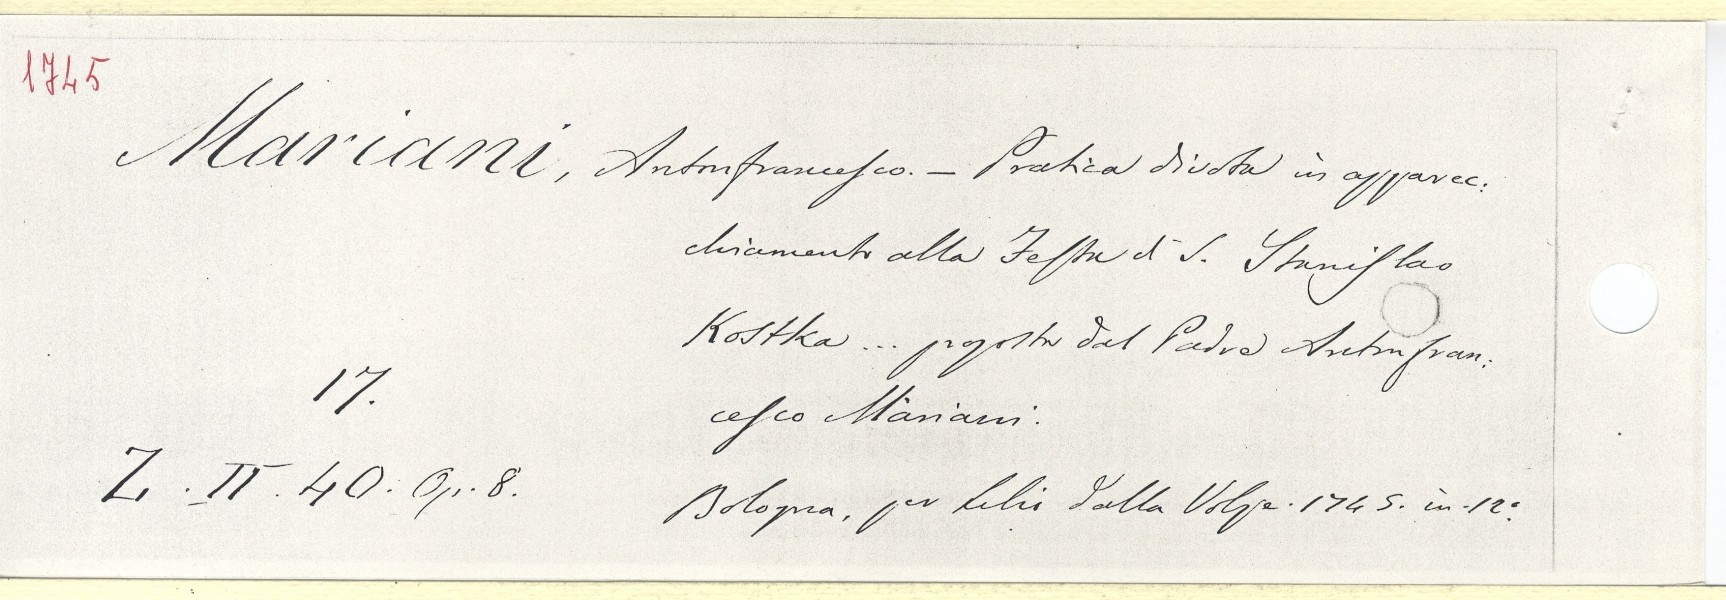 1745
Mariani, Antonfrancesco. — Pratica divota in apparec:
chiamento alla Festa di S. Stanislao
Kostka ... proposta dal Padre Antonfran:
cesco Mariani.
17.
Z. II. 40. Op. 8.
Bologna, per Lelio dalla Volpe. 1745. in-12°